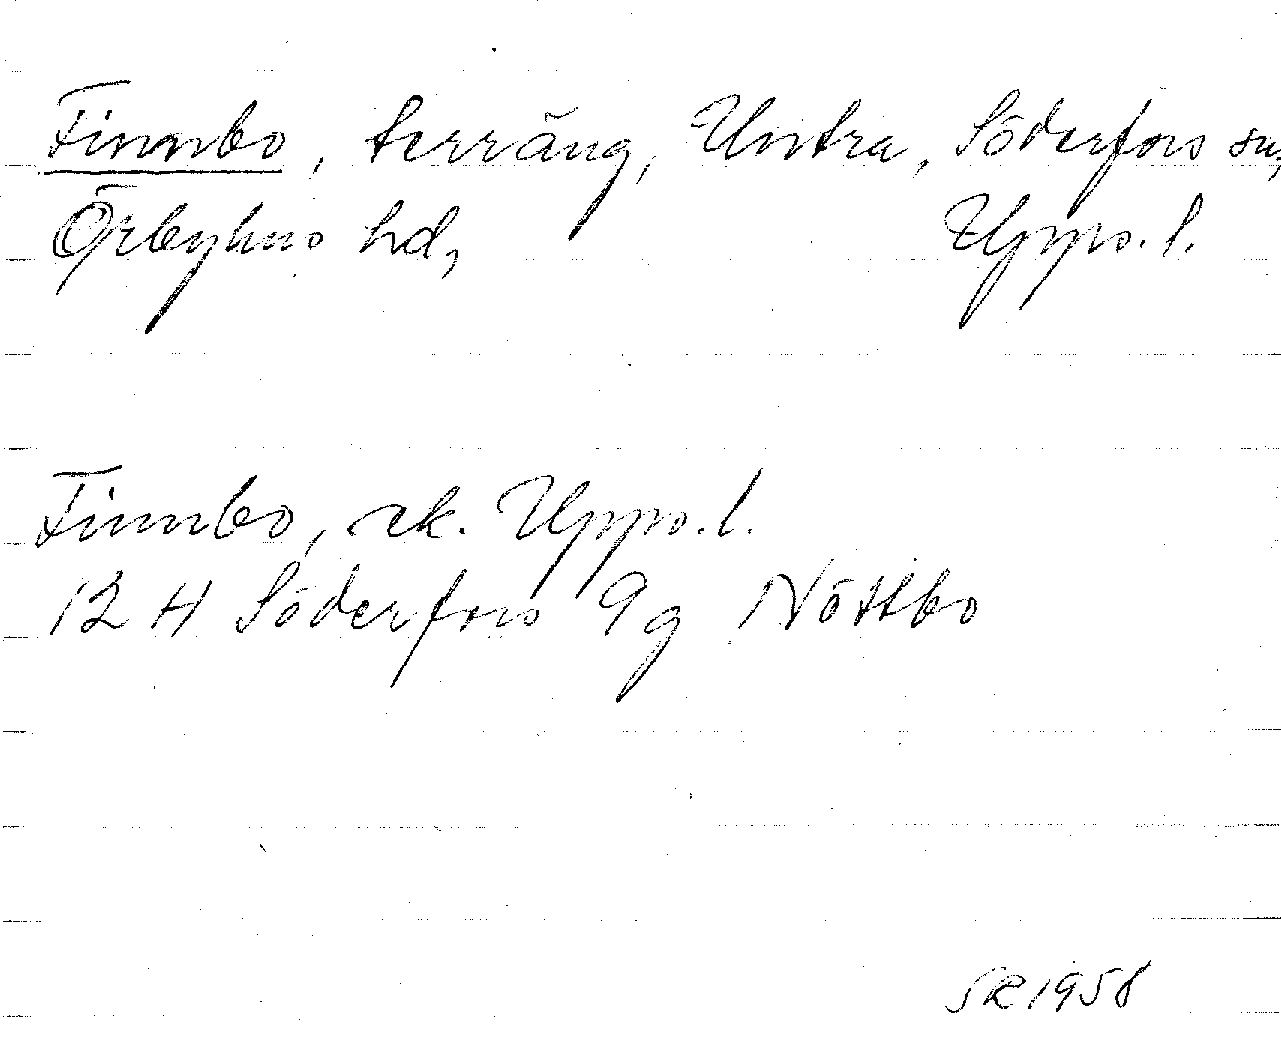 Finnbo, terräng, Untra, Söderfors sn,
Örbyhus hd, Upps. l.
Finnbo, ek. Upps. l.
12 H Söderfors 9g Nöttbo
SR 1958